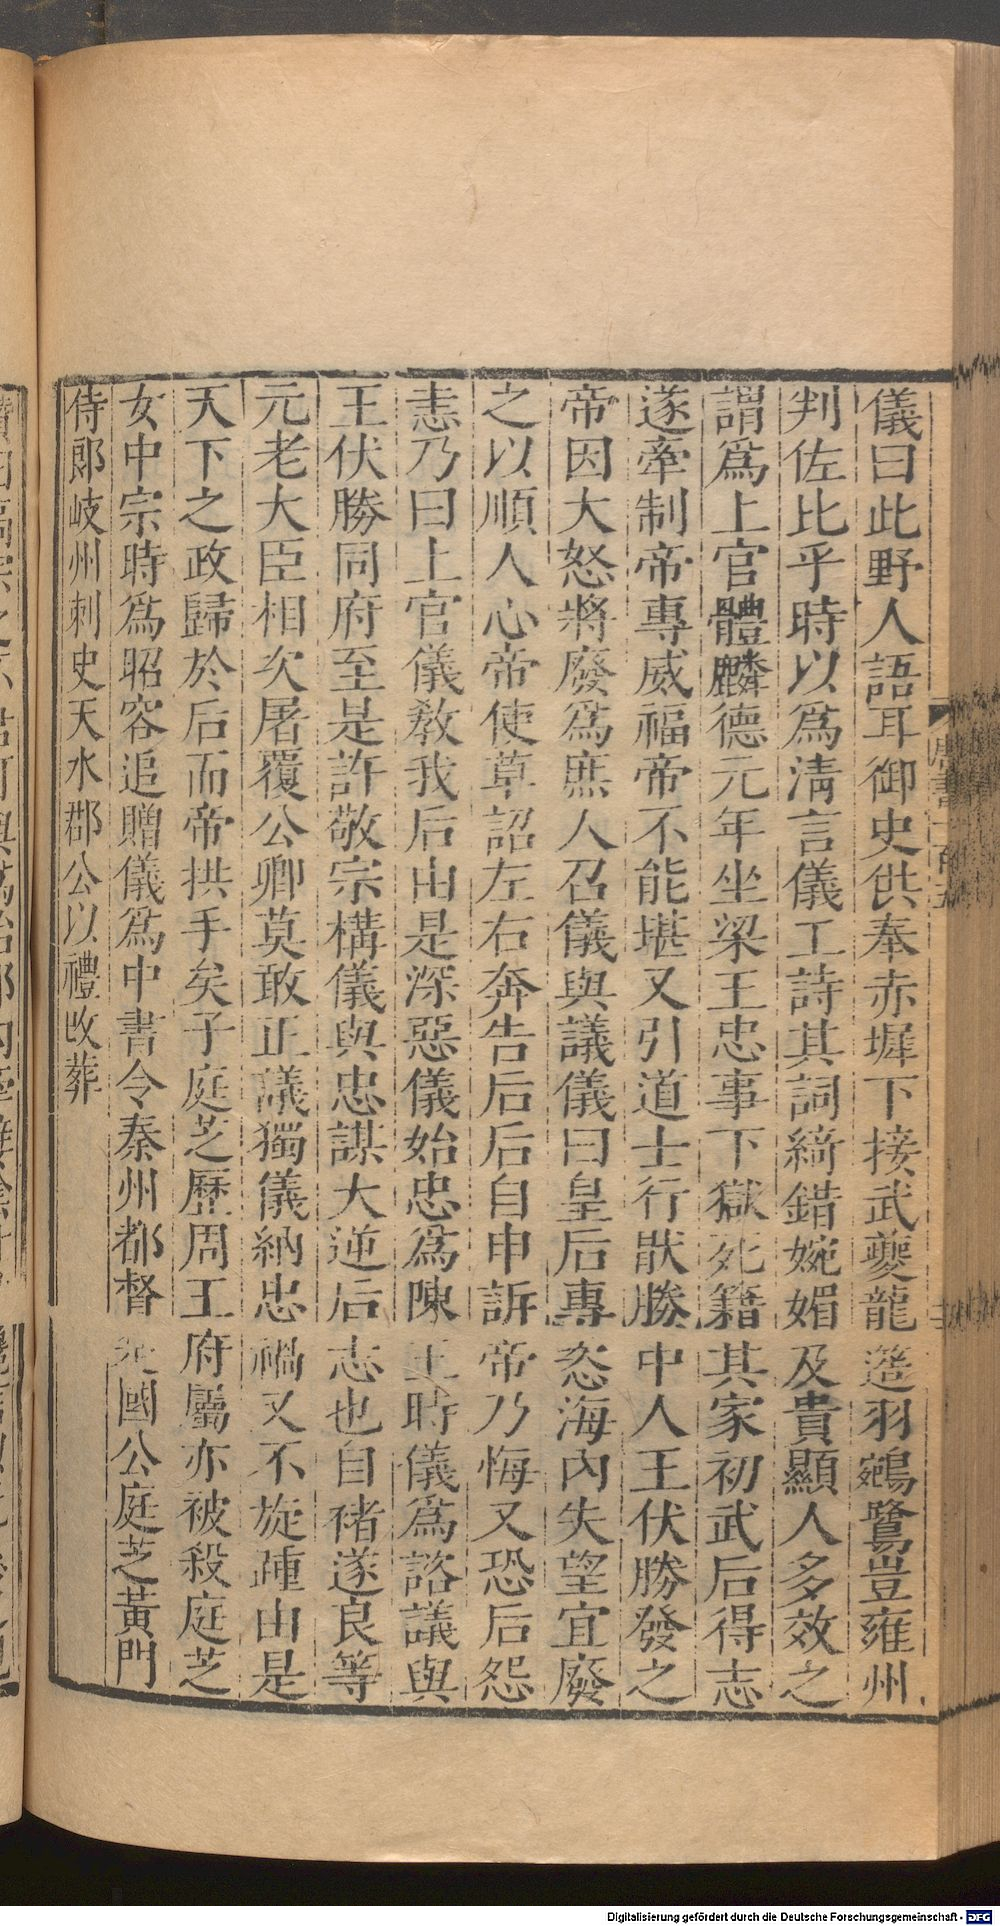 儀曰此野人語耳御史供奉赤墀下接武夔龍簉羽鵷鷺豈雍州
判佐比乎時以爲清言儀工詩其詞綺錯婉媚及貴顯人多效之
謂爲上官體麟德元年坐梁王忠事下獄死籍其家初武后得志
遂牽制帝專威福帝不能堪又引道士行厭勝中人王伏勝發之
帝因大怒將廢爲庶人召儀與議儀曰皇后專恣海內失望宜廢
之以順人心帝使草詔左右奔告后后自申訴帝乃悔又恐后怨
恚乃曰上官儀教我后由是深惡儀始忠爲陳王時儀爲諮議與
王伏勝同府至是許敬宗構儀與忠謀大逆后志也自褚遂良等
元老大臣相次屠覆公卿莫敢正議獨儀納忠禍又不旋踵由是
天下之政歸於后而帝拱手矣子庭芝歷周王府屬亦被殺庭芝
女中宗時爲昭容追贈儀爲中書令秦州都督楚國公庭芝黃門
侍郎岐州刺史天水郡公以禮改葬
Digitalisierung gefördert durch die Deutsche Forschungsgemeinschaft - DFG